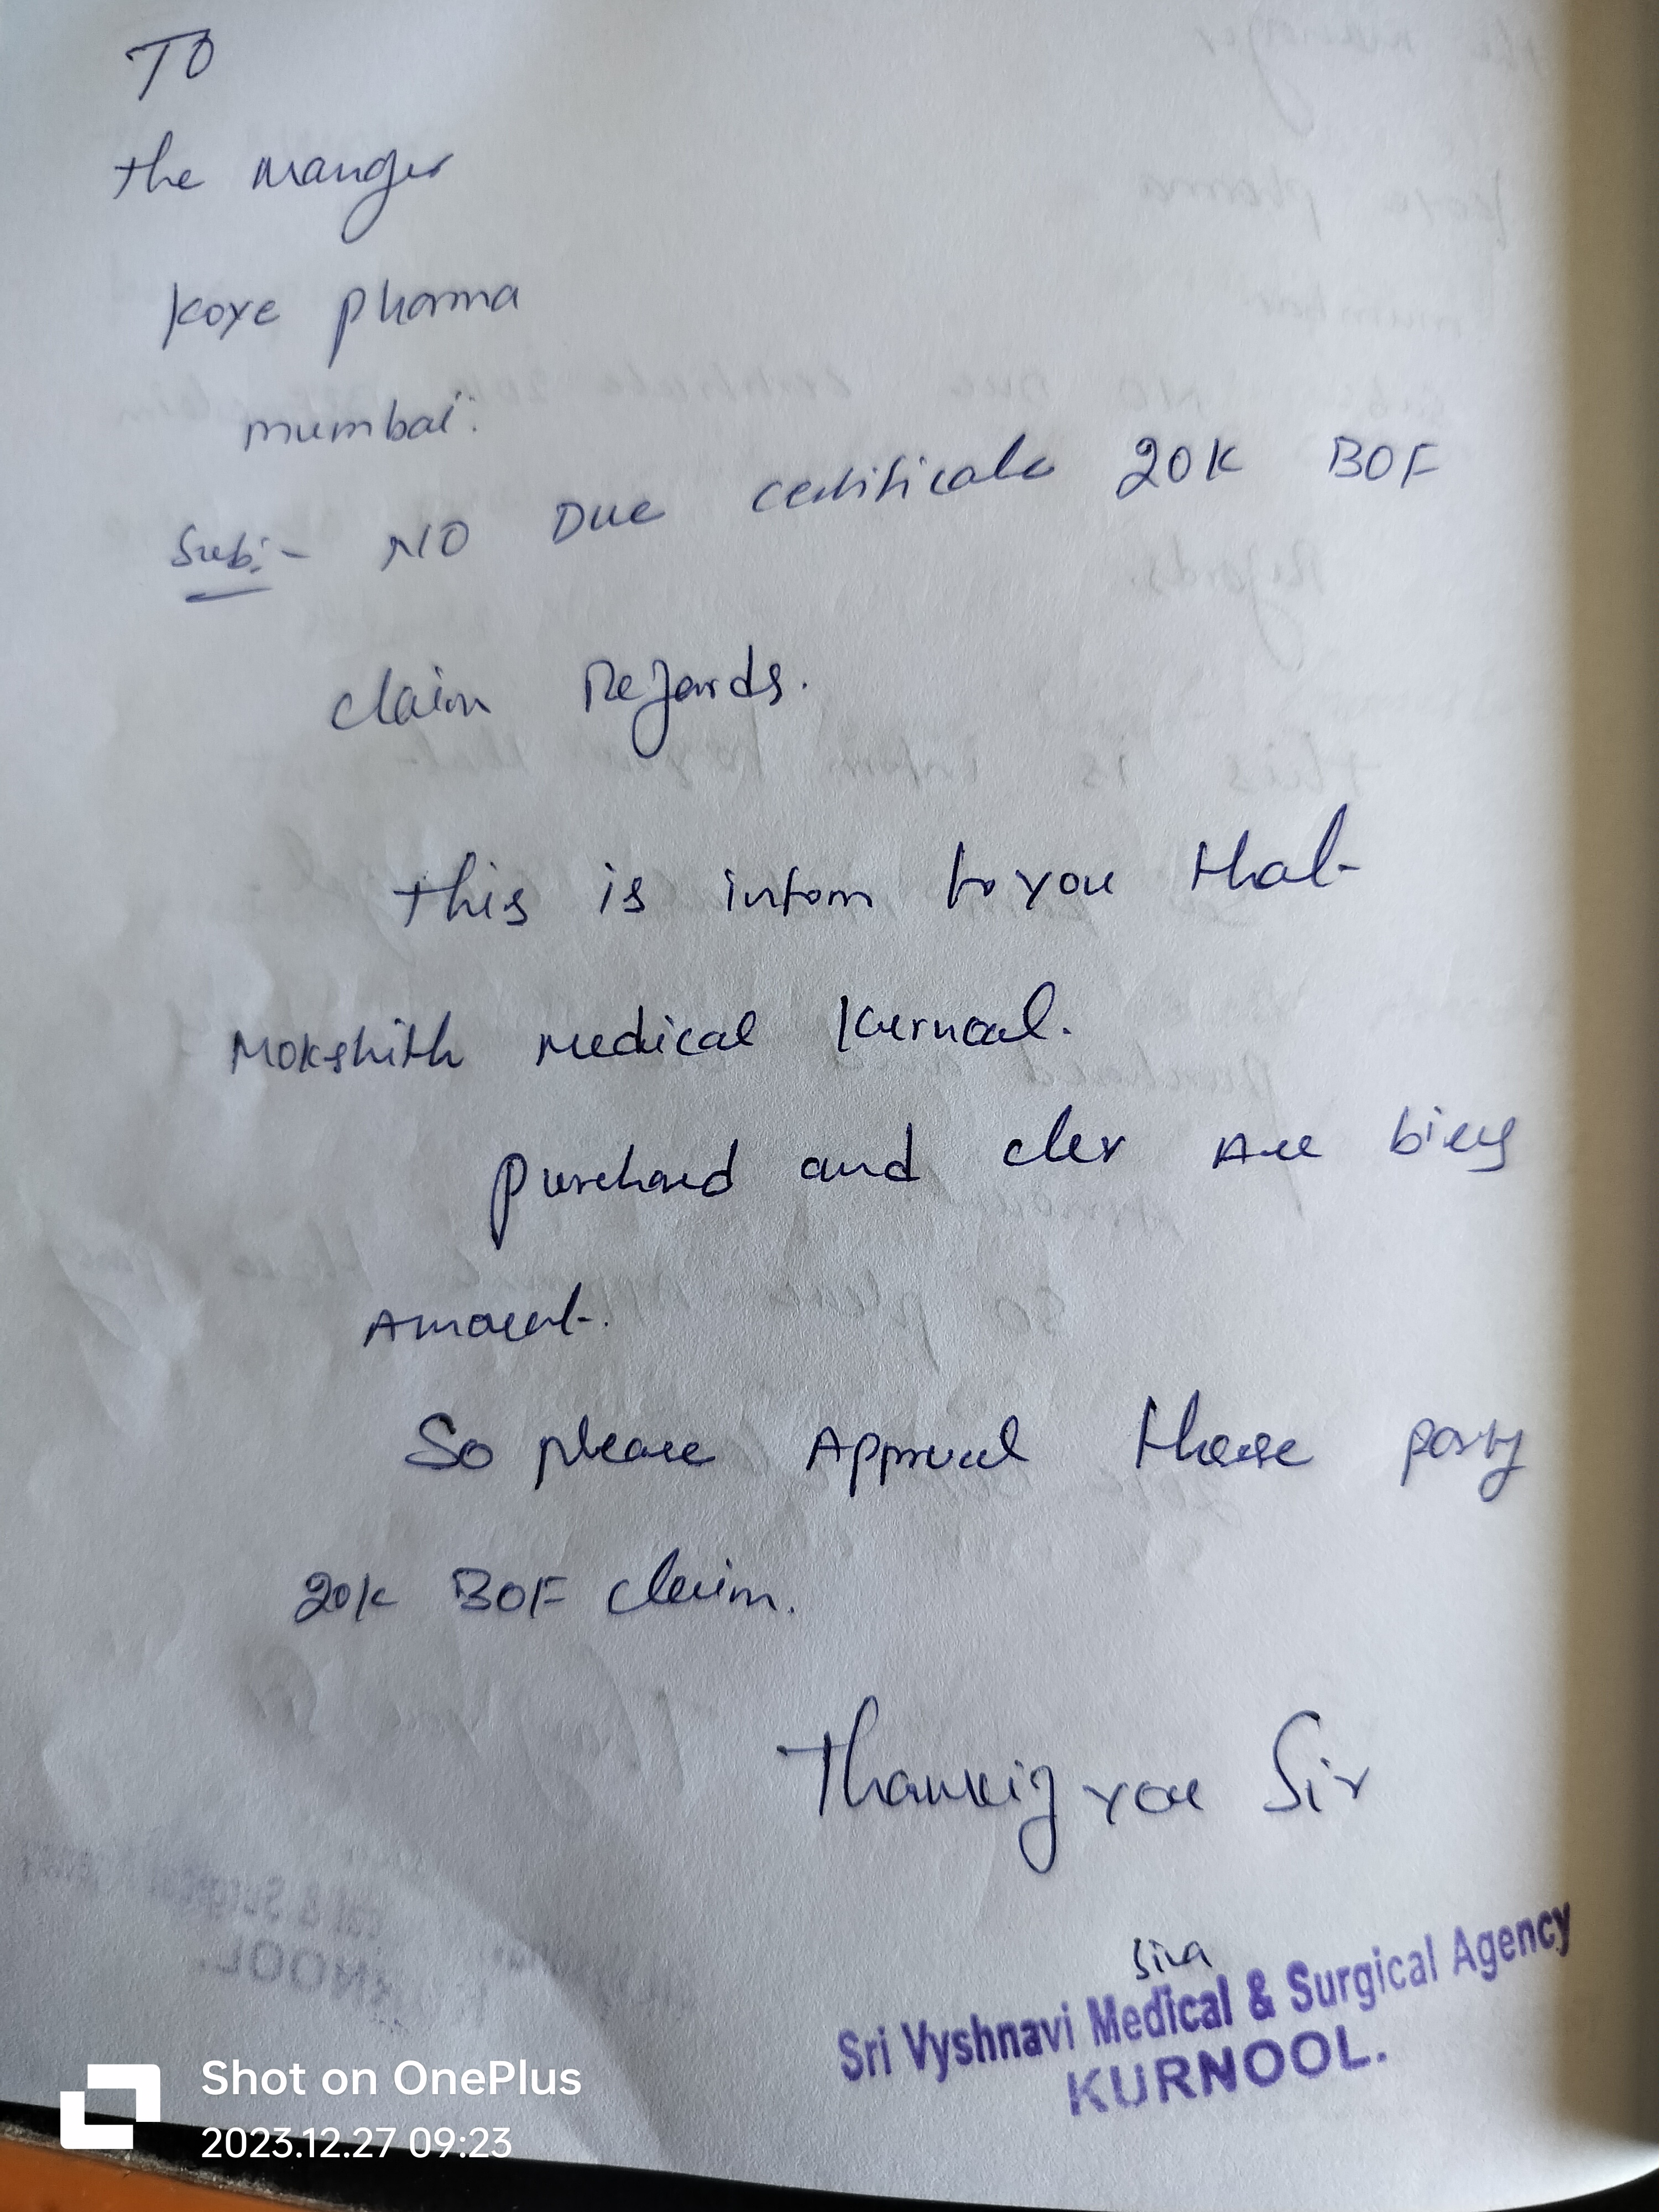 TO
the manger
Koye pharma
mumbai.
Sub:- NO Due certificate 20K BOF
claim Regards.
this is inform to you that
Mokshith Medical Kurnool.
purchased and cler All bills
Amount.
So please Approval these party
20K BOF claim.
Thankig you Sir
Siva
Sri Vyshnavi Medical & Surgical Agency
KURNOOL.
Shot on OnePlus
2023.12.27 09:23